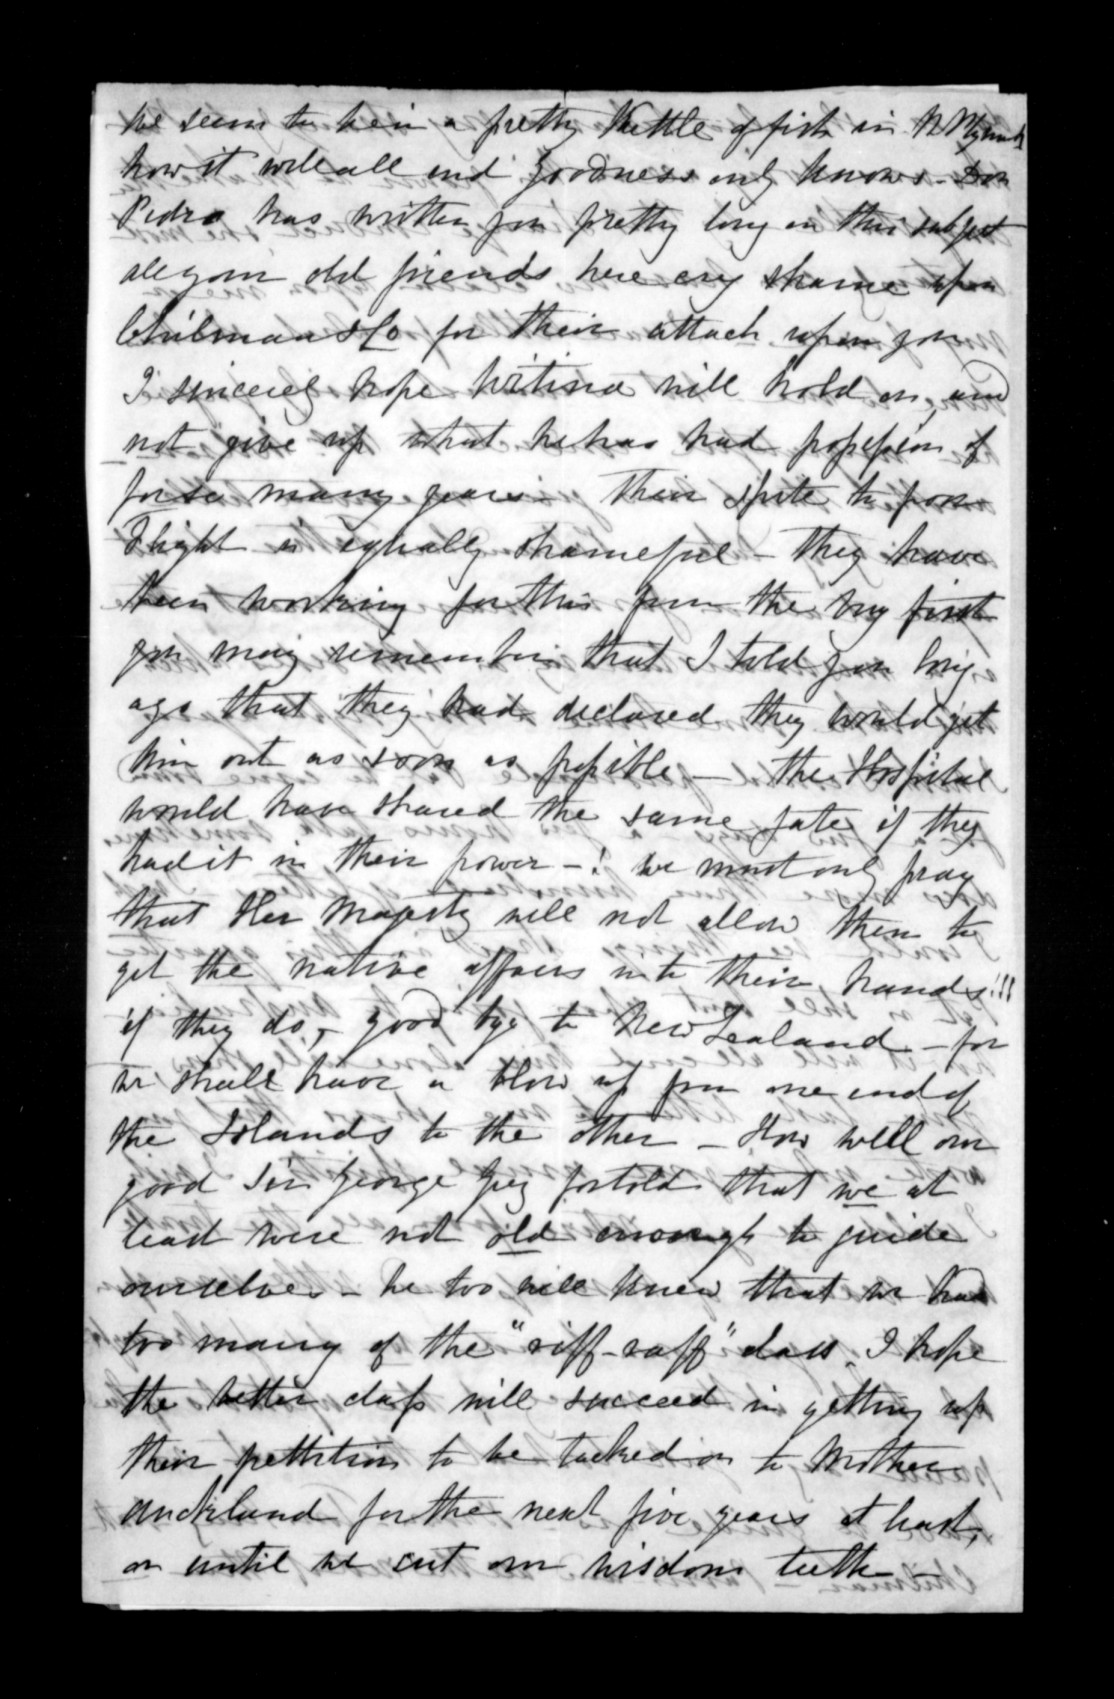 We seem to be in a pretty Kettle of fish in N Plymouth
how it will all end goodness only knows - Don
Pedro has written you pretty long on this subject
all your old friends here cry shame upon
Chilman & Co for their attack upon you
I sincerely hope Witina will hold on, and
not give up what he has had possession of
for so many years. Their spite to poor
Flight is equally shameful - they have
been working for this from the very first
you may remember that I told you long
ago that they had declared they would get
him out as soon as possible - the Hospital
would have shared the same fate if they
had it in their power - ! We must only pray
that Her Majesty will not allow them to
get the native affairs into their hands!!!
if they do, - good bye to New Zealand - for
we shall have a blow up from one end of
the Islands to the other - How well our
good Sir George Grey fortold that we at
least were not old enough to guide
ourselves - he too well knew that we had
too many of the "riff-raff" class. I hope
the better class will succeed in getting up
their pettition to be tacked on to Mother
Auckland for the next five years at least,
or until we cut our wisdom teeth -